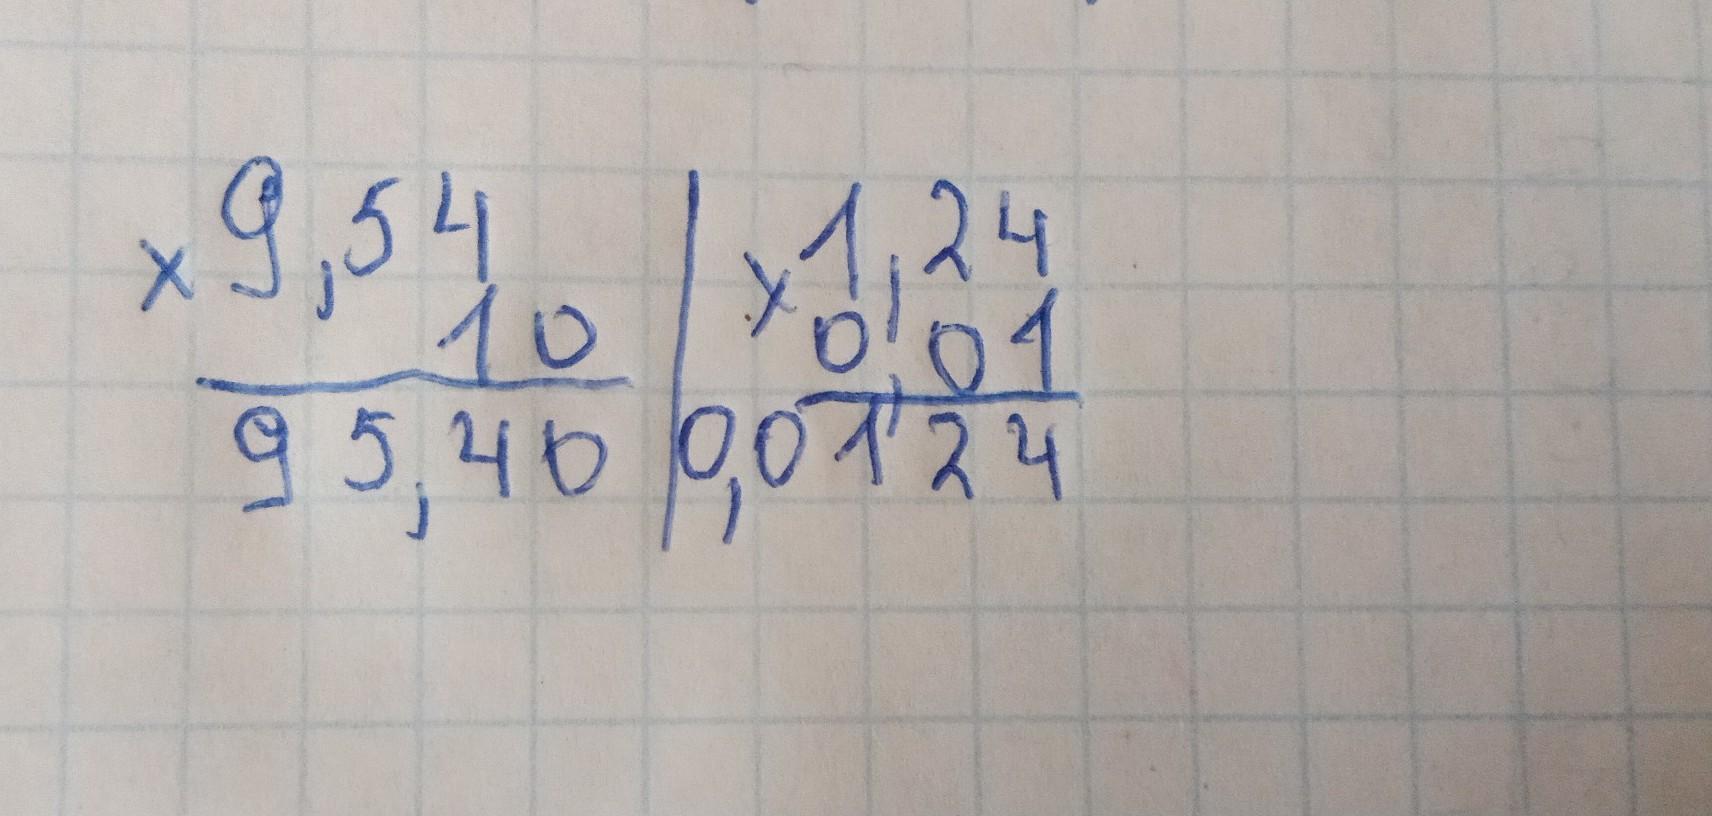 × 9,54
10
95,40
× 1,24
0,01
0,0124